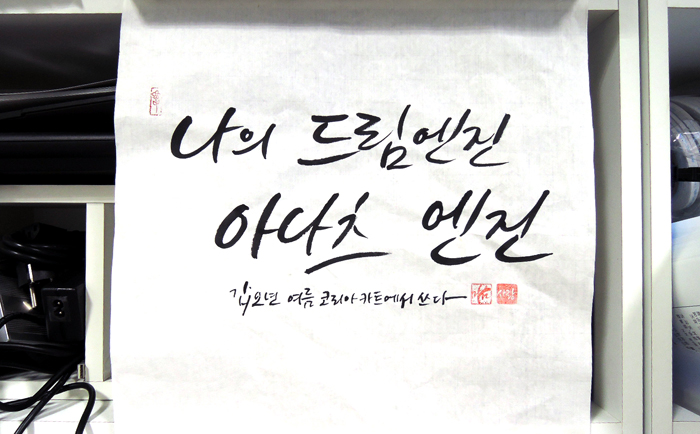 나의 드림엔진
아나츠 엔진
갑오년 여름 코리아카트에서 쓰다